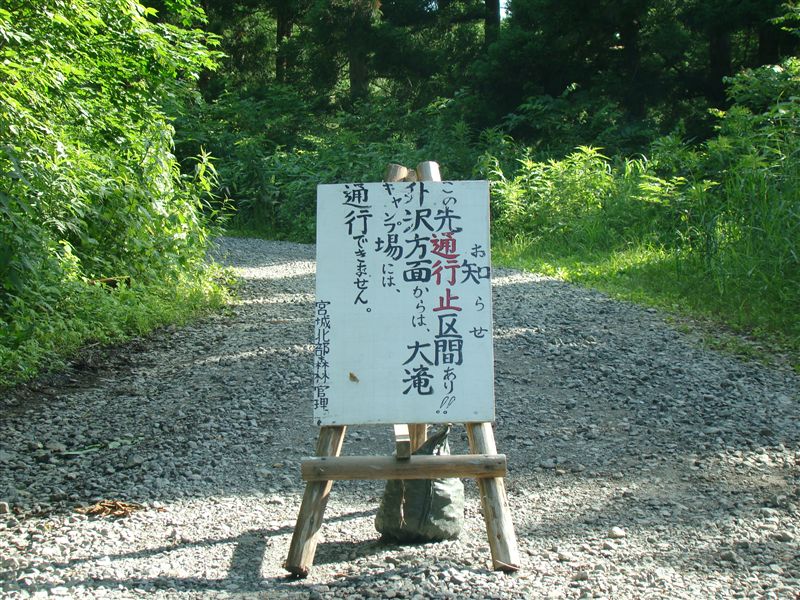 お知らせ
この先通行止区間あり!!
升沢方面からは、大滝
キャンプ場には、
通行できません。
宮城北部森林管理